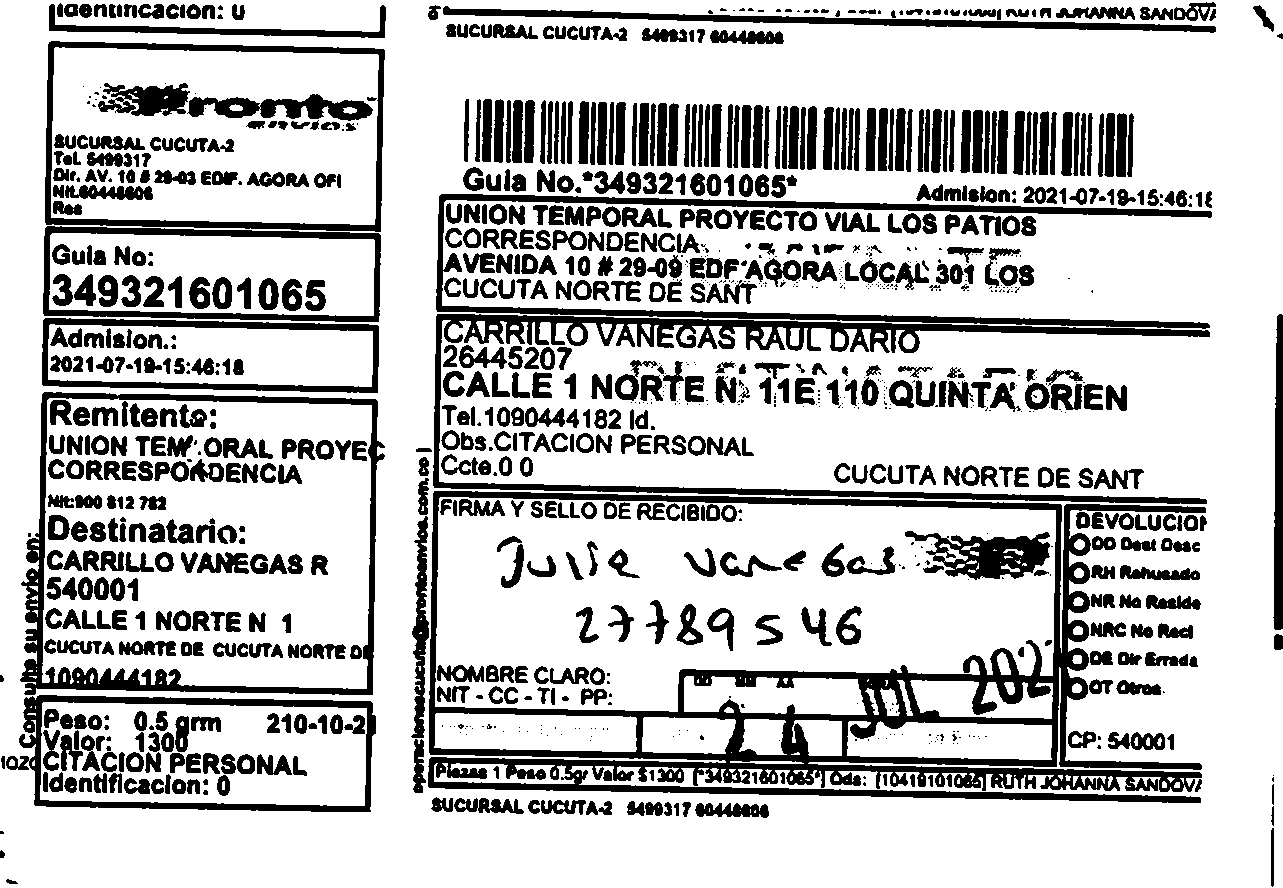 Identificacion: 0
RUTH JOHANNA SANDOVA
SUCURSAL CUCUTA-2 5499317 60448606
Pronto
envios
SUCURSAL CUCUTA-2
Tel. 5499317
Dir. AV. 10 # 29-03 EDIF. AGORA OFI
Nit.60448606
Res
Guia No:
349321601065
Admision.:
2021-07-19-15:46:18
Remitente:
UNION TEMPORAL PROYEC
CORRESPONDENCIA
Nit:900 812 782
Destinatario:
CARRILLO VANEGAS R
540001
CALLE 1 NORTE N 1
CUCUTA NORTE DE CUCUTA NORTE DE
1090444182
Peso: 0.5 grm 210-10-21
Valor: 1300
CITACION PERSONAL
Identificacion: 0
Consulte su envio en:
operacionescucuta@prontoenvios.com.co |
Guia No.*349321601065*
Admision: 2021-07-19-15:46:18
UNION TEMPORAL PROYECTO VIAL LOS PATIOS
CORRESPONDENCIA
AVENIDA 10 # 29-09 EDF AGORA LOCAL 301 LOS
CUCUTA NORTE DE SANT
CARRILLO VANEGAS RAUL DARIO
26445207
CALLE 1 NORTE N 11E 110 QUINTA ORIEN
Tel.1090444182 Id.
Obs.CITACION PERSONAL
Ccte.0 0
CUCUTA NORTE DE SANT
FIRMA Y SELLO DE RECIBIDO:
Julia Vanegas
27789546
NOMBRE CLARO:
NIT - CC - TI - PP:
DD MM AA
24 JUL 202
DEVOLUCION
DD Dest Desc
RH Rehusado
NR No Reside
NRC No Recl
DE Dir Errada
OT Otros
CP: 540001
Piezas 1 Peso 0.5gr Valor $1300 [*349321601065*] Ods: [10419101065] RUTH JOHANNA SANDOVA
SUCURSAL CUCUTA-2 5499317 60448606